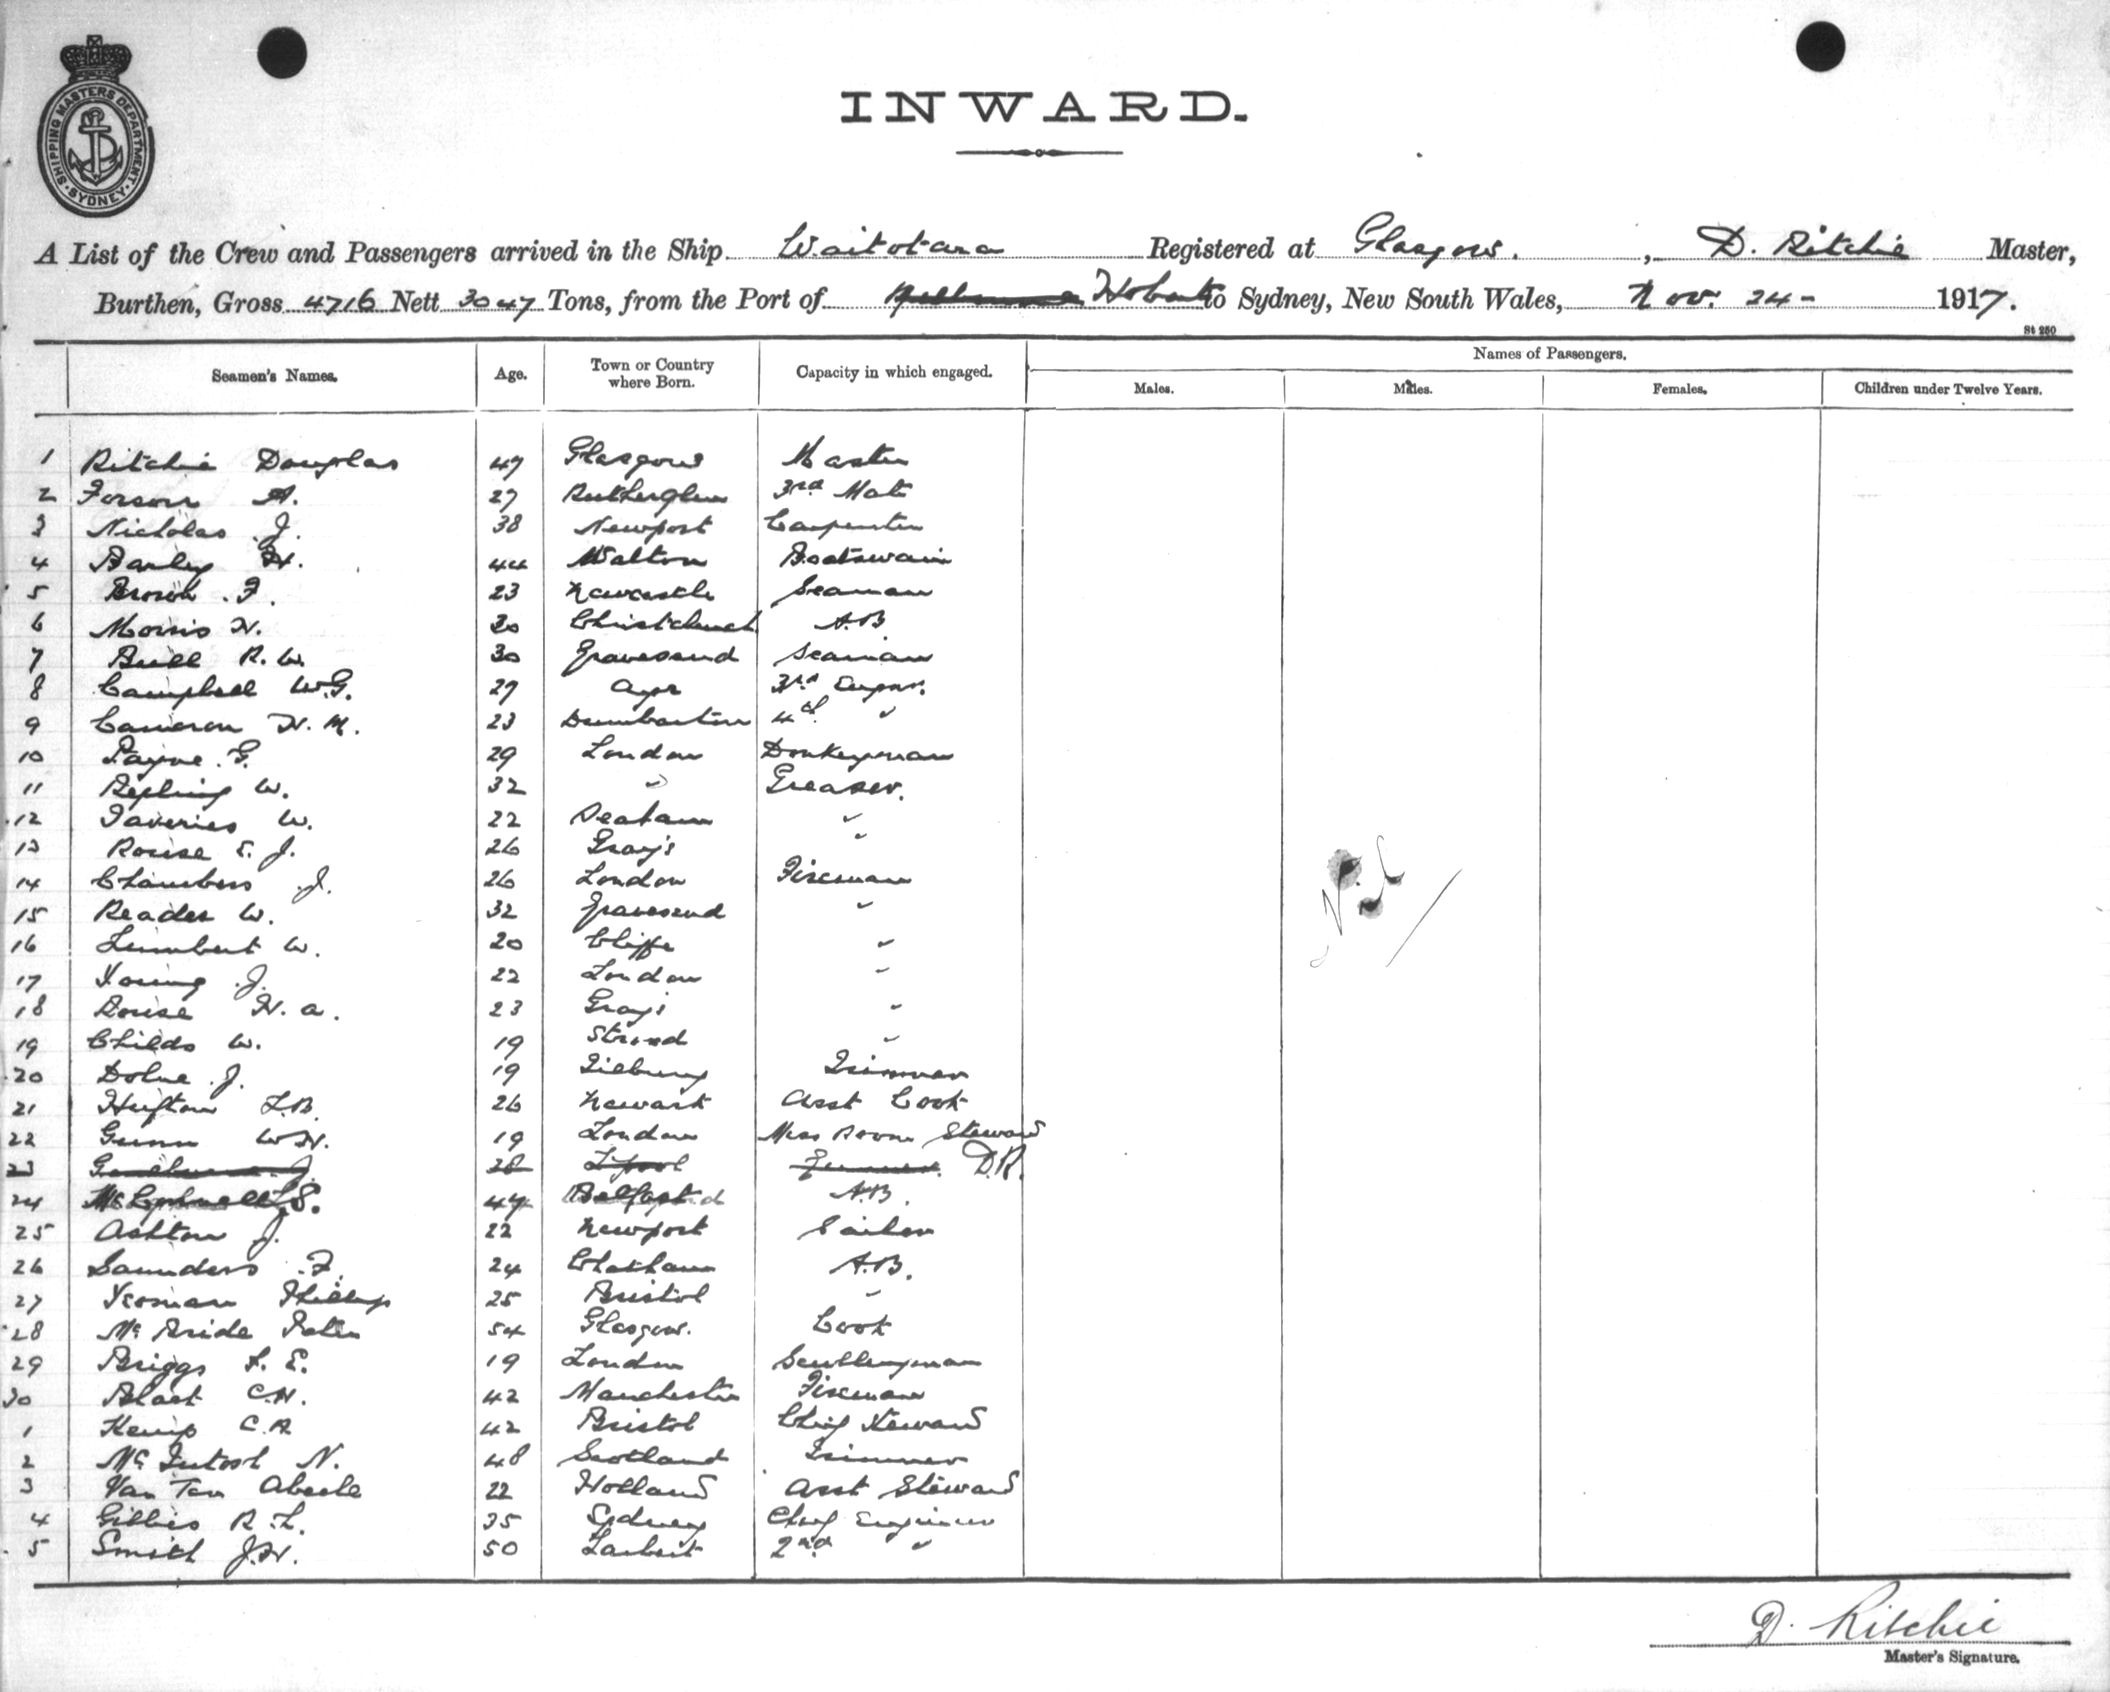 SHIPPING MASTERS DEPARTMENT · SYDNEY ·
INWARD.
A List of the Crew and Passengers arrived in the Ship Waitotara Registered at Glasgow. , D. Ritchie Master,
Burthen, Gross 4716 Nett 3047 Tons, from the Port of Hobart to Sydney, New South Wales, Nov. 24 - 1917.
St 250
Seamen's Names. Age. Town or Country where Born. Capacity in which engaged. Names of Passengers.
Males. Males. Females. Children under Twelve Years.
1 Ritchie Douglas 47 Glasgow Master
2 Forson A. 27 Rutherglen 3rd Mate
3 Nicholas J. 38 Newport Carpenter
4 Barley H. 44 Walton Boatswain
5 Brown F. 23 Newcastle Seaman
6 Morris H. 30 Christchurch A.B
7 Bull R.W. 30 Gravesend Seaman
8 Campbell W.G. 27 Ayr 3rd Engnr.
9 Cameron H. M. 23 Dumbarton 4th "
10 Payne G. 29 London Donkeyman
11 W. 32 " Greaser.
12 W. 22 Seaham "
13 Rouse E. J. 26 Grays "
14 Chambers J. 26 London Fireman
15 Reader W. 32 Gravesend "
16 W. 20 Cliffe "
17 Young J. 22 London "
18 Rouse H. A. 23 Grays "
19 Childs W. 19 Strood "
20 J. 19 Tilbury Trimmer
21 Hufton L.B. 26 Newark Asst Cook
22 Gunn W.H. 19 London Mess Room Steward
23 J. 28 L'pool D.R.
24 S. 47 Belfast A.B.
25 Ashton J. 22 Newport Sailor
26 Saunders F. 24 Chatham A.B.
27 Yeoman Phillip 25 Bristol "
28 McBride Peter 54 Glasgow. Cook
29 Briggs F. E. 19 London Sculleryman
30 C.H. 42 Manchester Fireman
1 Kemp C.R 42 Bristol Chief Steward
2 McIntosh N. 48 Scotland Trimmer
3 Van Ten Abeele 22 Holland Asst Steward
4 Gillies R.L. 35 Sydney Chief Engineer
5 Smith J.H. 50 Larbert 2nd "
D. Ritchie
Master's Signature.